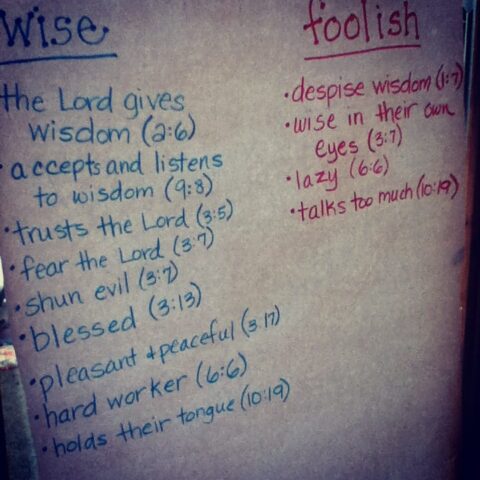 wise
the Lord gives
wisdom (2:6)
• accepts and listens
to wisdom (9:8)
• trusts the Lord (3:5)
• fear the Lord (3:7)
• shun evil (3:7)
• blessed (3:13)
• pleasant + peaceful (3:17)
• hard worker (6:6)
• holds their tongue (10:19)
foolish
• despise wisdom (1:7)
• wise in their own
eyes (3:7)
• lazy (6:6)
• talks too much (10:19)